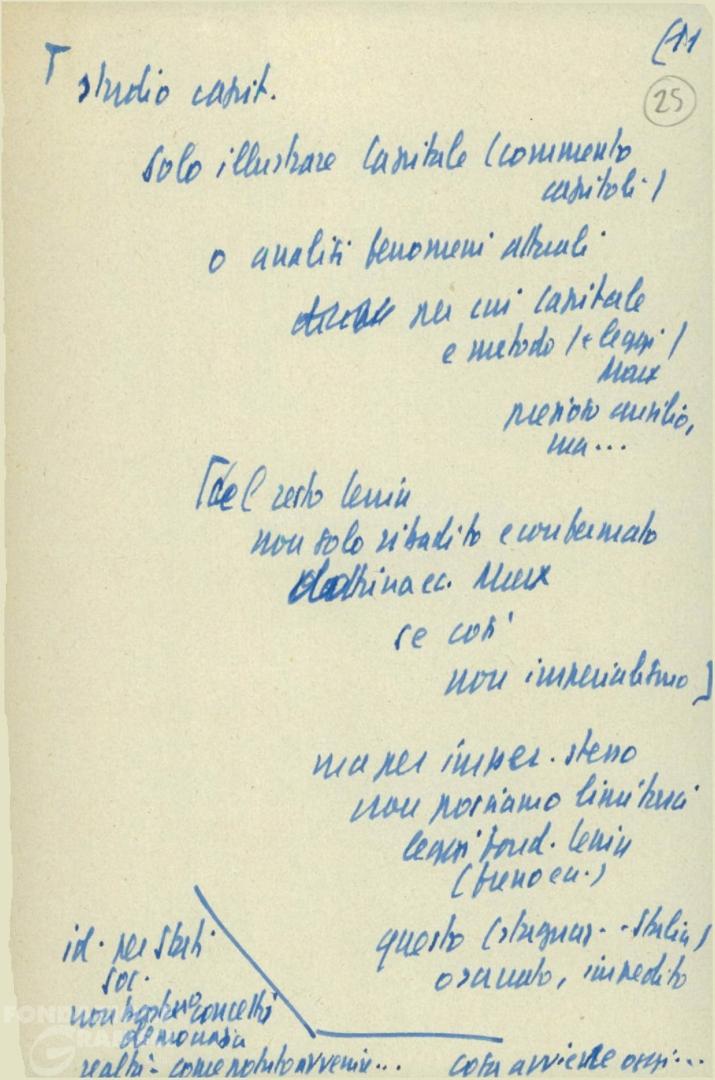 (11
25
studio capit.
solo illustrare Capitale (commento
capitoli)
o analisi fenomeni attuali
per cui Capitale
e metodo (e leggi)
Marx
prezioso ausilio,
ma...
[del resto Lenin
non solo ribadito e confermato
dottrina ec. Marx
se così
non imperialismo]
ma per imper. stesso
non possiamo limitarci
leggi fond. Lenin
(freno ec.)
questo (stagnaz. - Stalin)
oscurato, impedito
id. per Stati
soc.
non bastano concetti
democrazia
realtà - come potuto avvenire...
cosa avviene oggi...
FOND
GRA